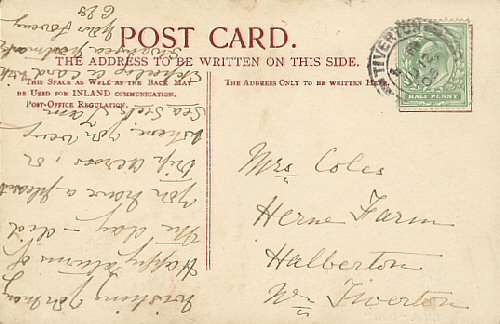 POST CARD.
THE ADDRESS TO BE WRITTEN ON THIS SIDE.
THIS SPACE AS WELL AS THE BACK MAY
BE USED FOR INLAND COMMUNICATION.
POST-OFFICE REGULATION.
THE ADDRESS ONLY TO BE WRITTEN
TIVERTON
HALF PENNY
Mrs Coles
Herne Farm
Halberton
Nr Tiverton
Wishing you many
Happy returns of
the day – did
you have a pleasant
trip across, or
were you very
Sea Sick. I am
a card with
Swansea postmark
loving